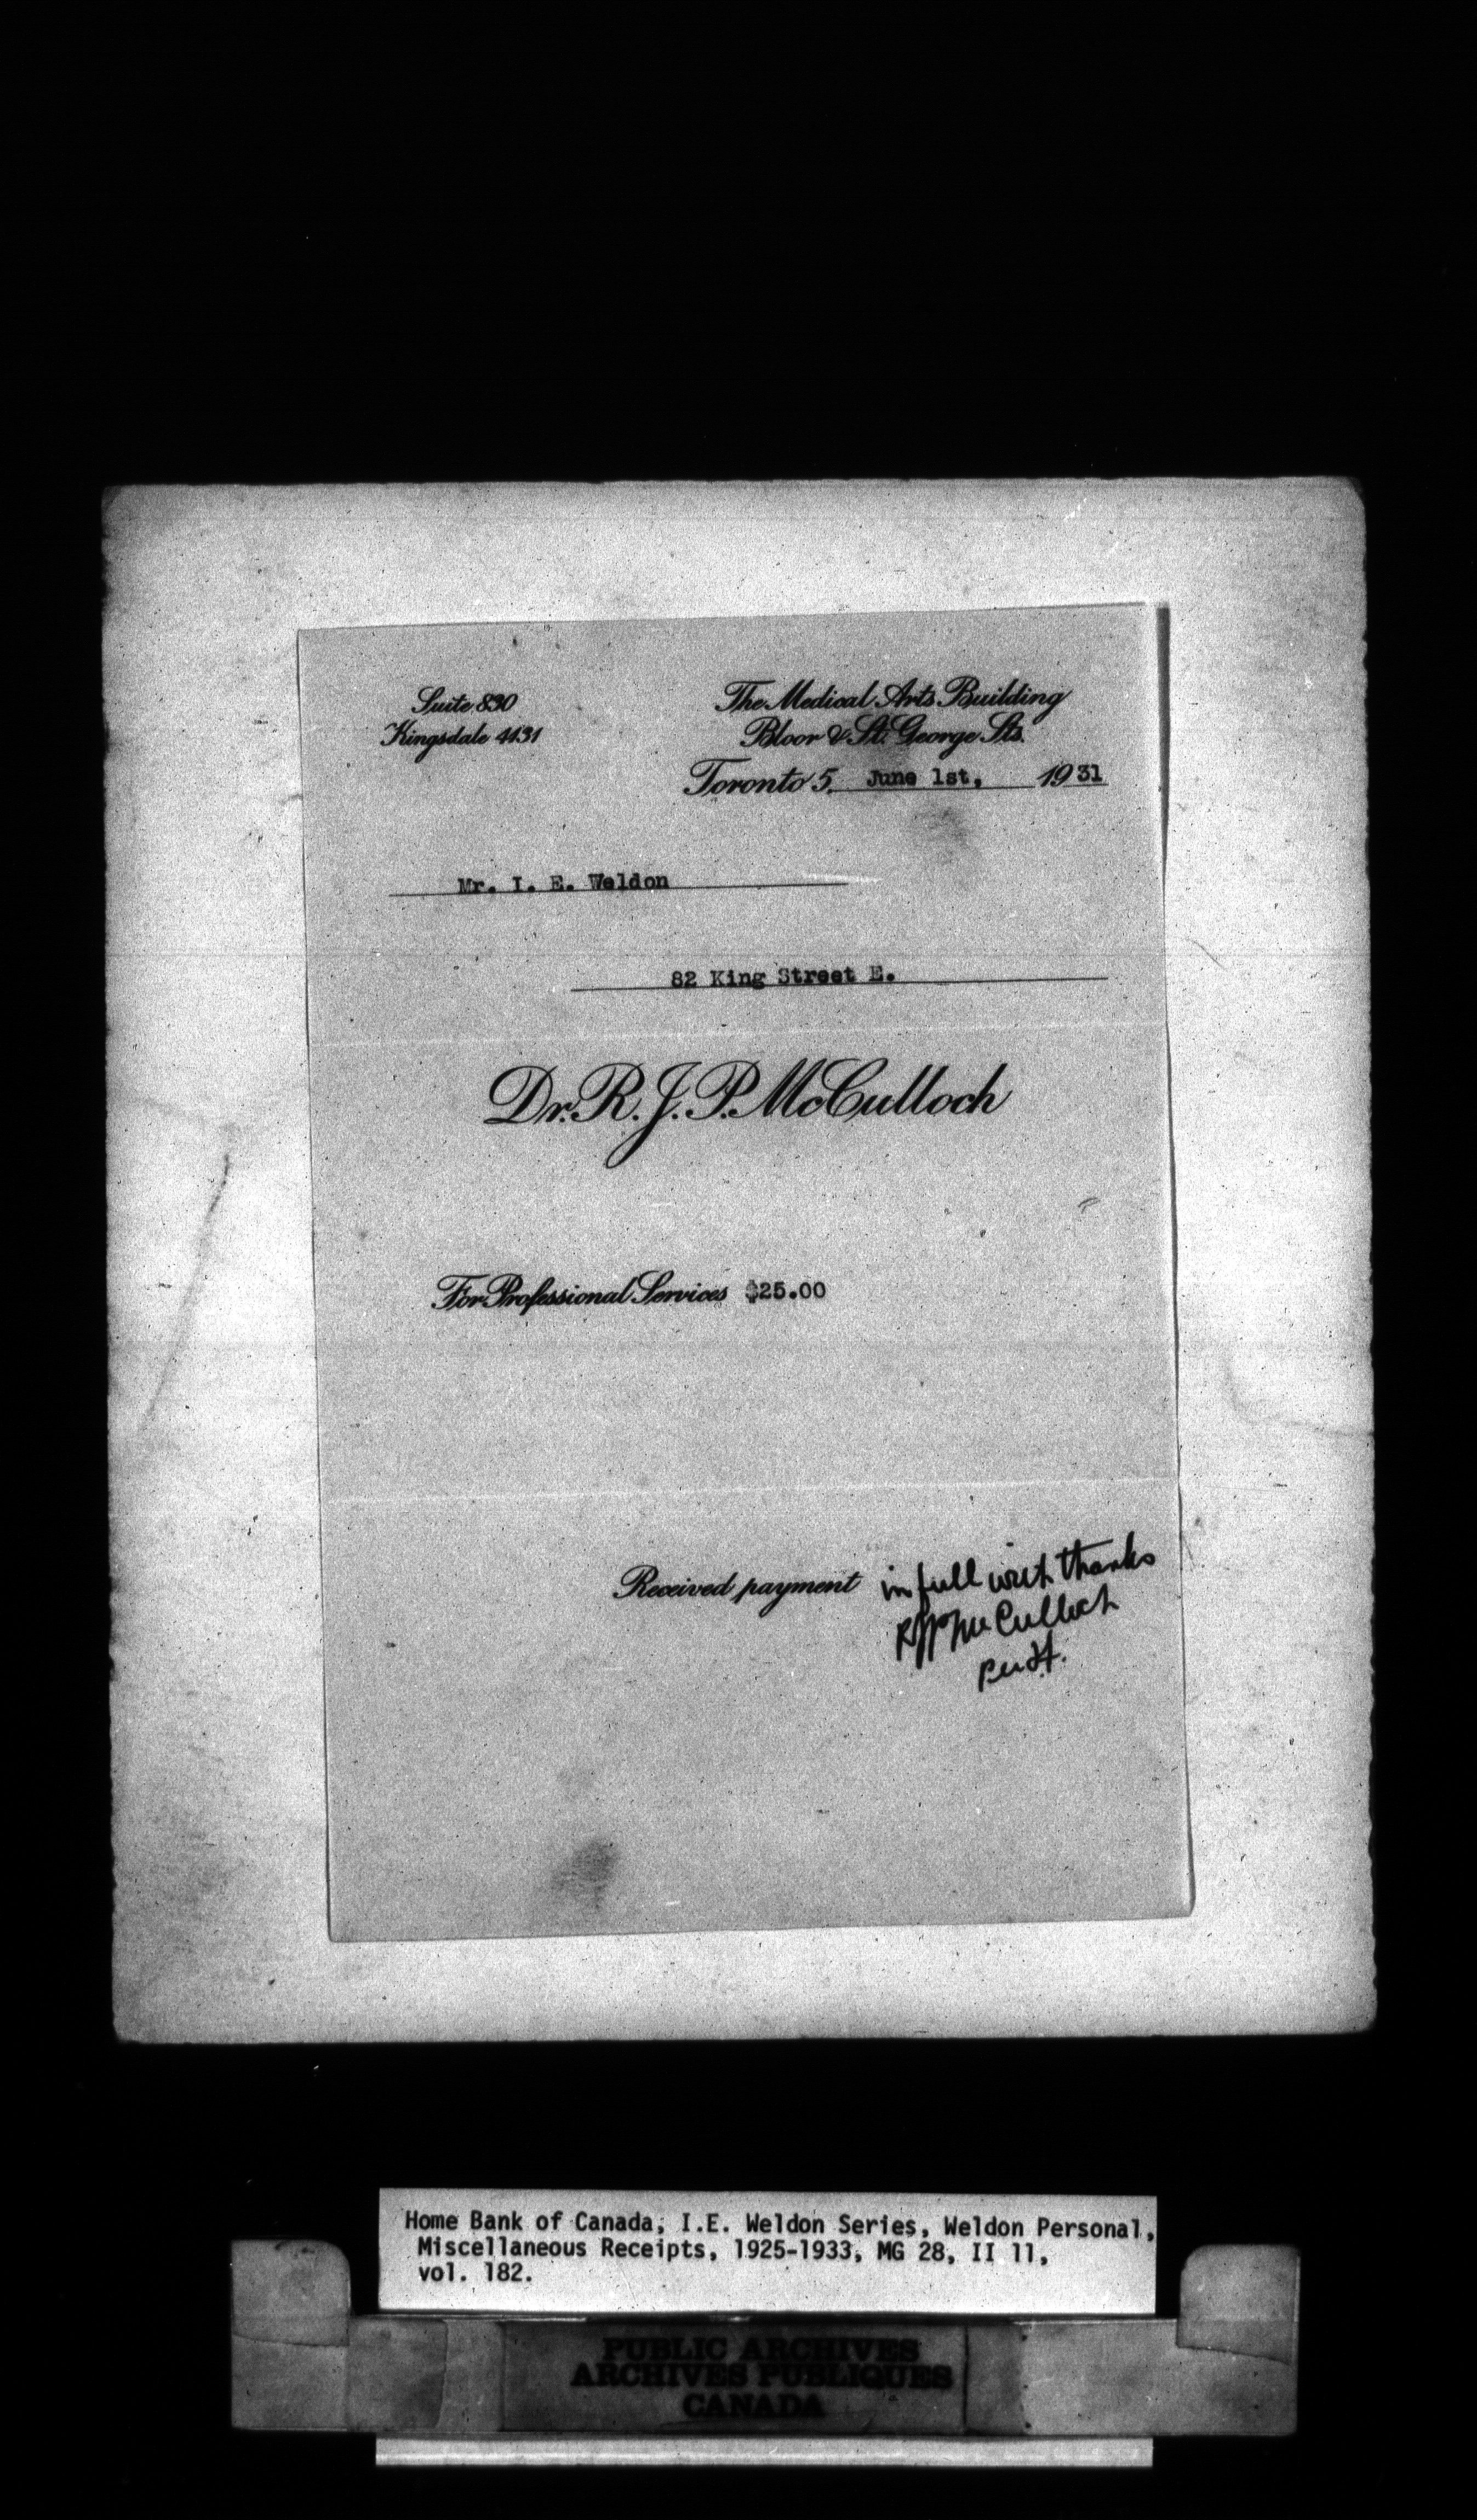 Suite 830
Kingsdale 4131
The Medical Arts Building
Bloor & St. George Sts.
Toronto 5. June 1st, 1931
Mr. I. E. Weldon
82 King Street E.
Dr. R. J. P. McCulloch
For Professional Services $25.00
Received payment in full with thanks
RJP McCulloch
per
Home Bank of Canada, I.E. Weldon Series, Weldon Personal,
Miscellaneous Receipts, 1925-1933, MG 28, II 11,
vol. 182.
PUBLIC ARCHIVES
ARCHIVES PUBLIQUES
CANADA